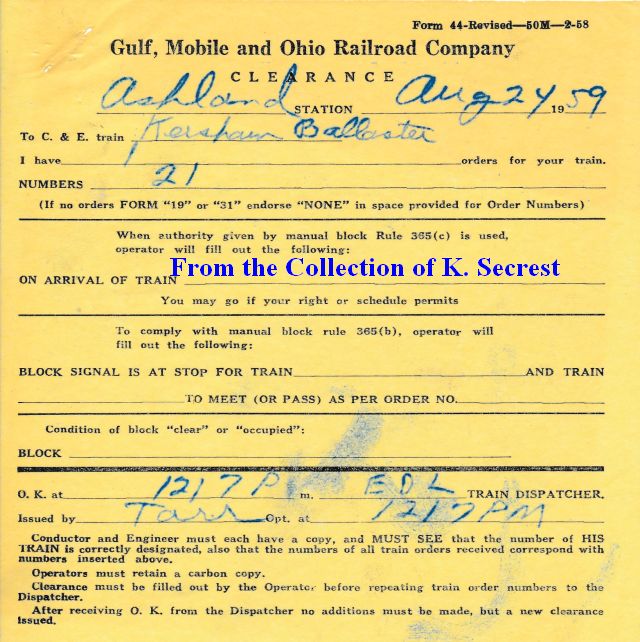 Form 44-Revised—50M—2-58
Gulf, Mobile and Ohio Railroad Company
CLEARANCE
Ashland STATION Aug 24 1959
To C. & E. train Kershaw Ballaster
I have orders for your train.
NUMBERS 21
(If no orders FORM "19" or "31" endorse "NONE" in space provided for Order Numbers)
When authority given by manual block Rule 365(c) is used,
operator will fill out the following:
From the Collection of K. Secrest
ON ARRIVAL OF TRAIN
You may go if your right or schedule permits
To comply with manual block rule 365(b), operator will
fill out the following:
BLOCK SIGNAL IS AT STOP FOR TRAIN AND TRAIN
TO MEET (OR PASS) AS PER ORDER NO.
Condition of block "clear" or "occupied":
BLOCK
O. K. at 1217 P m. EDL TRAIN DISPATCHER.
Issued by Tarr Opt. at 1217 PM
Conductor and Engineer must each have a copy, and MUST SEE that the number of HIS
TRAIN is correctly designated, also that the numbers of all train orders received correspond with
numbers inserted above.
Operators must retain a carbon copy.
Clearance must be filled out by the Operator before repeating train order numbers to the
Dispatcher.
After receiving O. K. from the Dispatcher no additions must be made, but a new clearance
issued.